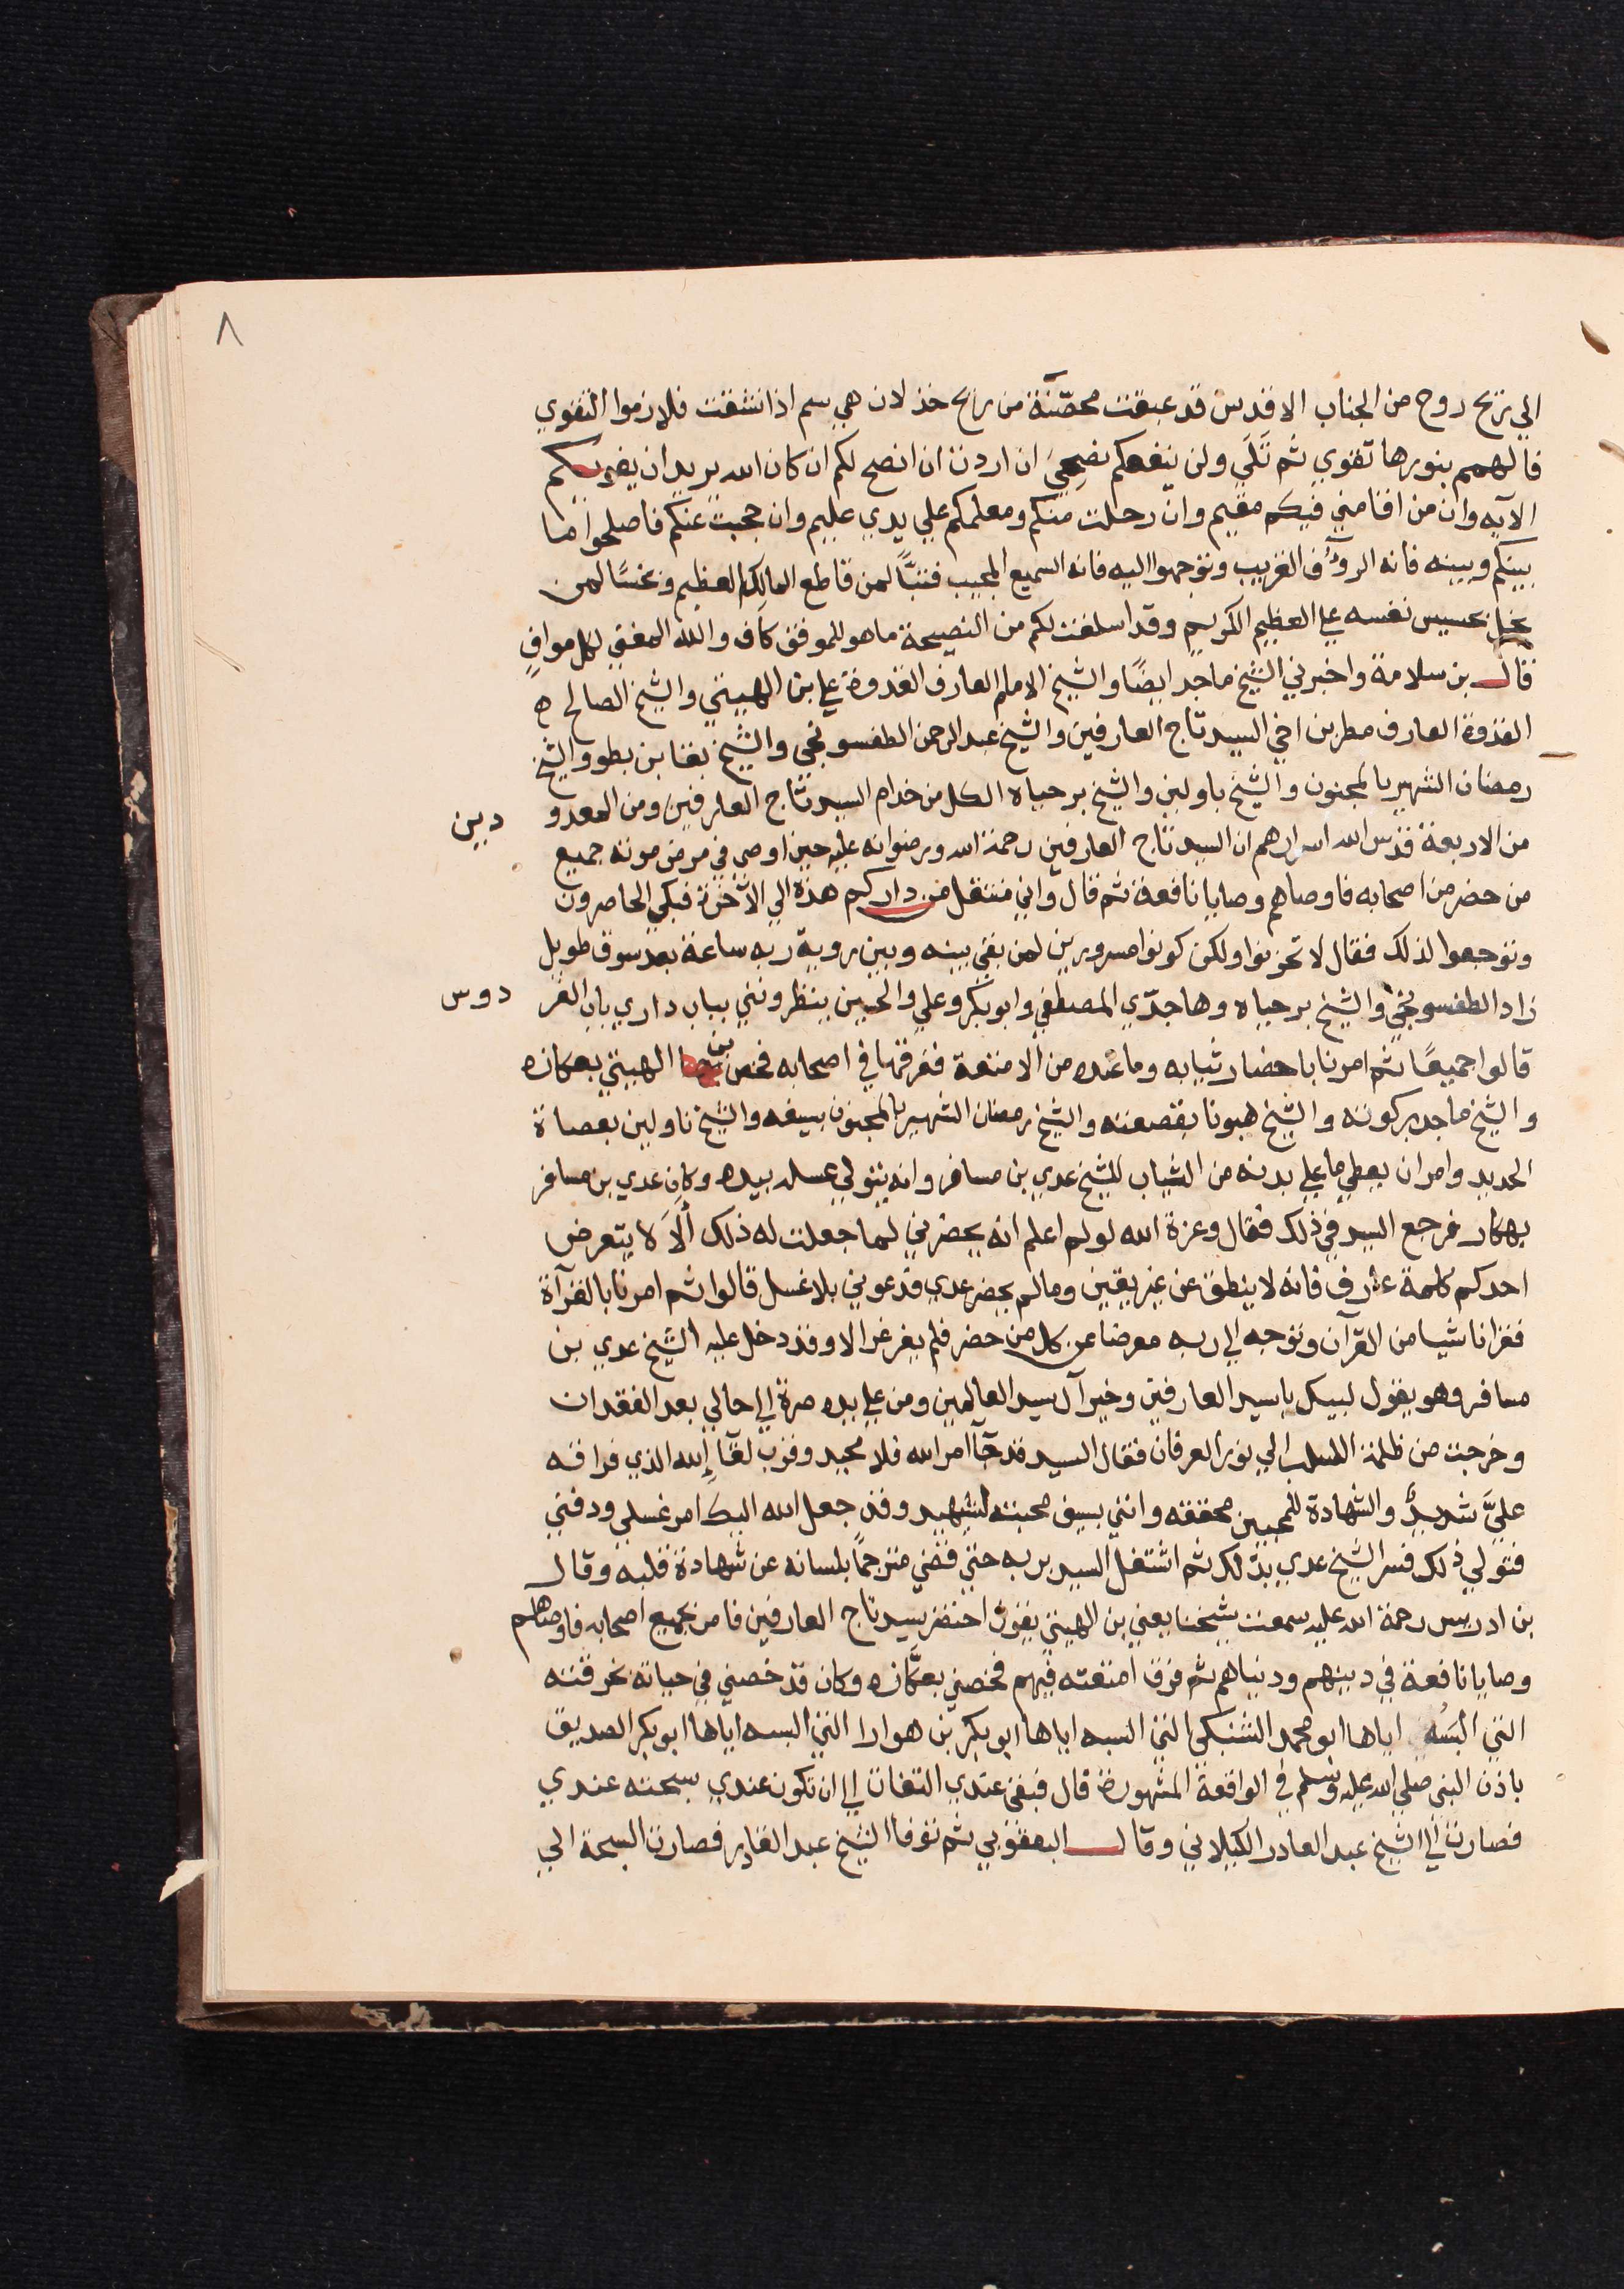 ٨
الي بريح روح من الجناب الاقدس قد عبقت محصّنَة من ريح خذلان هي سم اذا نشقت فلازموا التقوي
فالهمم بنورها تقوي ثم تَلَي ولن ينفعكم نصحيَ ان اردت ان انصح لكم ان كان الله يريد ان يغويكم
الآيه وان من اقامني فيكم مقيم وان رحلت منكم ومعلمكم علي يدي عليم وان حجبت عنكم فاصلحوا ما
بينكم وبينه فانه الروؤف القريب وتوجهوا اليه فانه السميع المجيب فتبًّا لمن قاطع المالك العظيم وتعسًا لمن
بخل بخسيس نفسه علي العظيم الكريم وقد اسلفت لكم من النصيحة ما هو للموفق كاف والله المفتي لكل مواف
قال بن سلامة واخبرني الشيخ ماجد ايضًا والشيخ الامام العارف القدوة علي بن الهيتي والشيخ الصالح ه
القدوة العارف مطر بن اخي السيد تاج العارفين والشيخ عبد الرحمن الطفسونجي والشيخ بقا بن بطو والشيخ
رمضان الشهير بالمجنون والشيخ ناولين والشيخ برحياه الكل من خدام السيد تاج العارفين ومن المعدو
دين
من الاربعة قدس الله اسرارهم ان السيد تاج العارفين رحمة الله ورضوانه عليه حين اوصي في مرض موته جميع
من حضر من اصحابه فاوصاهم وصايا نافعة ثم قال واني منتقل من داركم هذه الي الآخرة فبكي الحاضرون
وتوجعوا لذلك فقال لا تحزنوا ولكن كونوا مسرورين لمن بقي بينه وبين روية ربه ساعة بعد سوق طويل
زاد الطفسونجي والشيخ برحياه وها جدّي المصطفي وابوبكر وعلي والحسين ينظرونني بباب داري باب الفر
دوس
قالوا جميعًا ثم امرنا باحضار ثيابه وما عنده من الامتعة ففرقها في اصحابه فخص بن الهيتي بعكازه
والشيخ ماجد بركوته والشيخ هبونا بقصعته والشيخ رمضان الشهير بالمجنون بسيفه والشيخ ناولين بعصاة
الحديد وامر ان يعطي ما علي بدنه من الثياب للشيخ عدي بن مسافر وانه يتولي غسله بيده وكان عدي بن مسافر
بهكار فرجع السيد في ذلك فقال وعزة الله لو لم اعلم انه يحضرني لما جعلت له ذلك ألَا لا يتعرض
احدكم كلمة عارف فانه لا ينطق عن غير يقين وما لم يحضر عدي فدعوني بلا غسل قالوا ثم امرنا بالقرآة
فقرانا شيا من القرآن وتوجه الي ربه معرضا عن كل من حضر فلم يغرغر الا وقد دخل عليه الشيخ عدي بن
مسافر وهو يقول لبيك يا سيد العارفين وخير آل سيد العالمين ومن علي يده مرة الي حالي بعد الفقدان
وخرجت من ظلمة السلب الي نور العرفان فقال السيد قد جآ امر الله فلا محيد وقرب لقآ الله الذي فراقه
عليَّ شديدٌ والشهادة للمحبين محققه وانني بسيف محبته لشهيد وقد جعل الله اليك امر غسلي ودفني
فتولي ذلك فسر الشيخ عدي بذلك ثم اشتغل السيد بربه حتي قضي مترجمًا بلسانه عن شهادة قلبه وقال
بن ادريس رحمة الله عليه سمعت شيخنا يعني بن الهيتي يقول احتضر سيد تاج العارفين فامر بجميع اصحابه فاوصاهم
وصايا نافعة في دينهم ودنياهم ثم فرق امتعته فيهم فخصني بعكّازه وكان قد خصني في حياته بخرقته
التي البَسُه اياها ابو محمد الشنبكي التي البسه اياها ابو بكر بن هوارا التي البسه اياها ابو بكر الصديق
باذن النبي صلي الله عليه وسلم في الواقعة المشهورة قال فبقي عندي التفات الي ان تكون عندي سبحته عندي
فصارت الي الشيخ عبد القادر الكيلاني وقال البعقوبي ثم توفا الشيخ عبد القادر فصارت السبحة الي